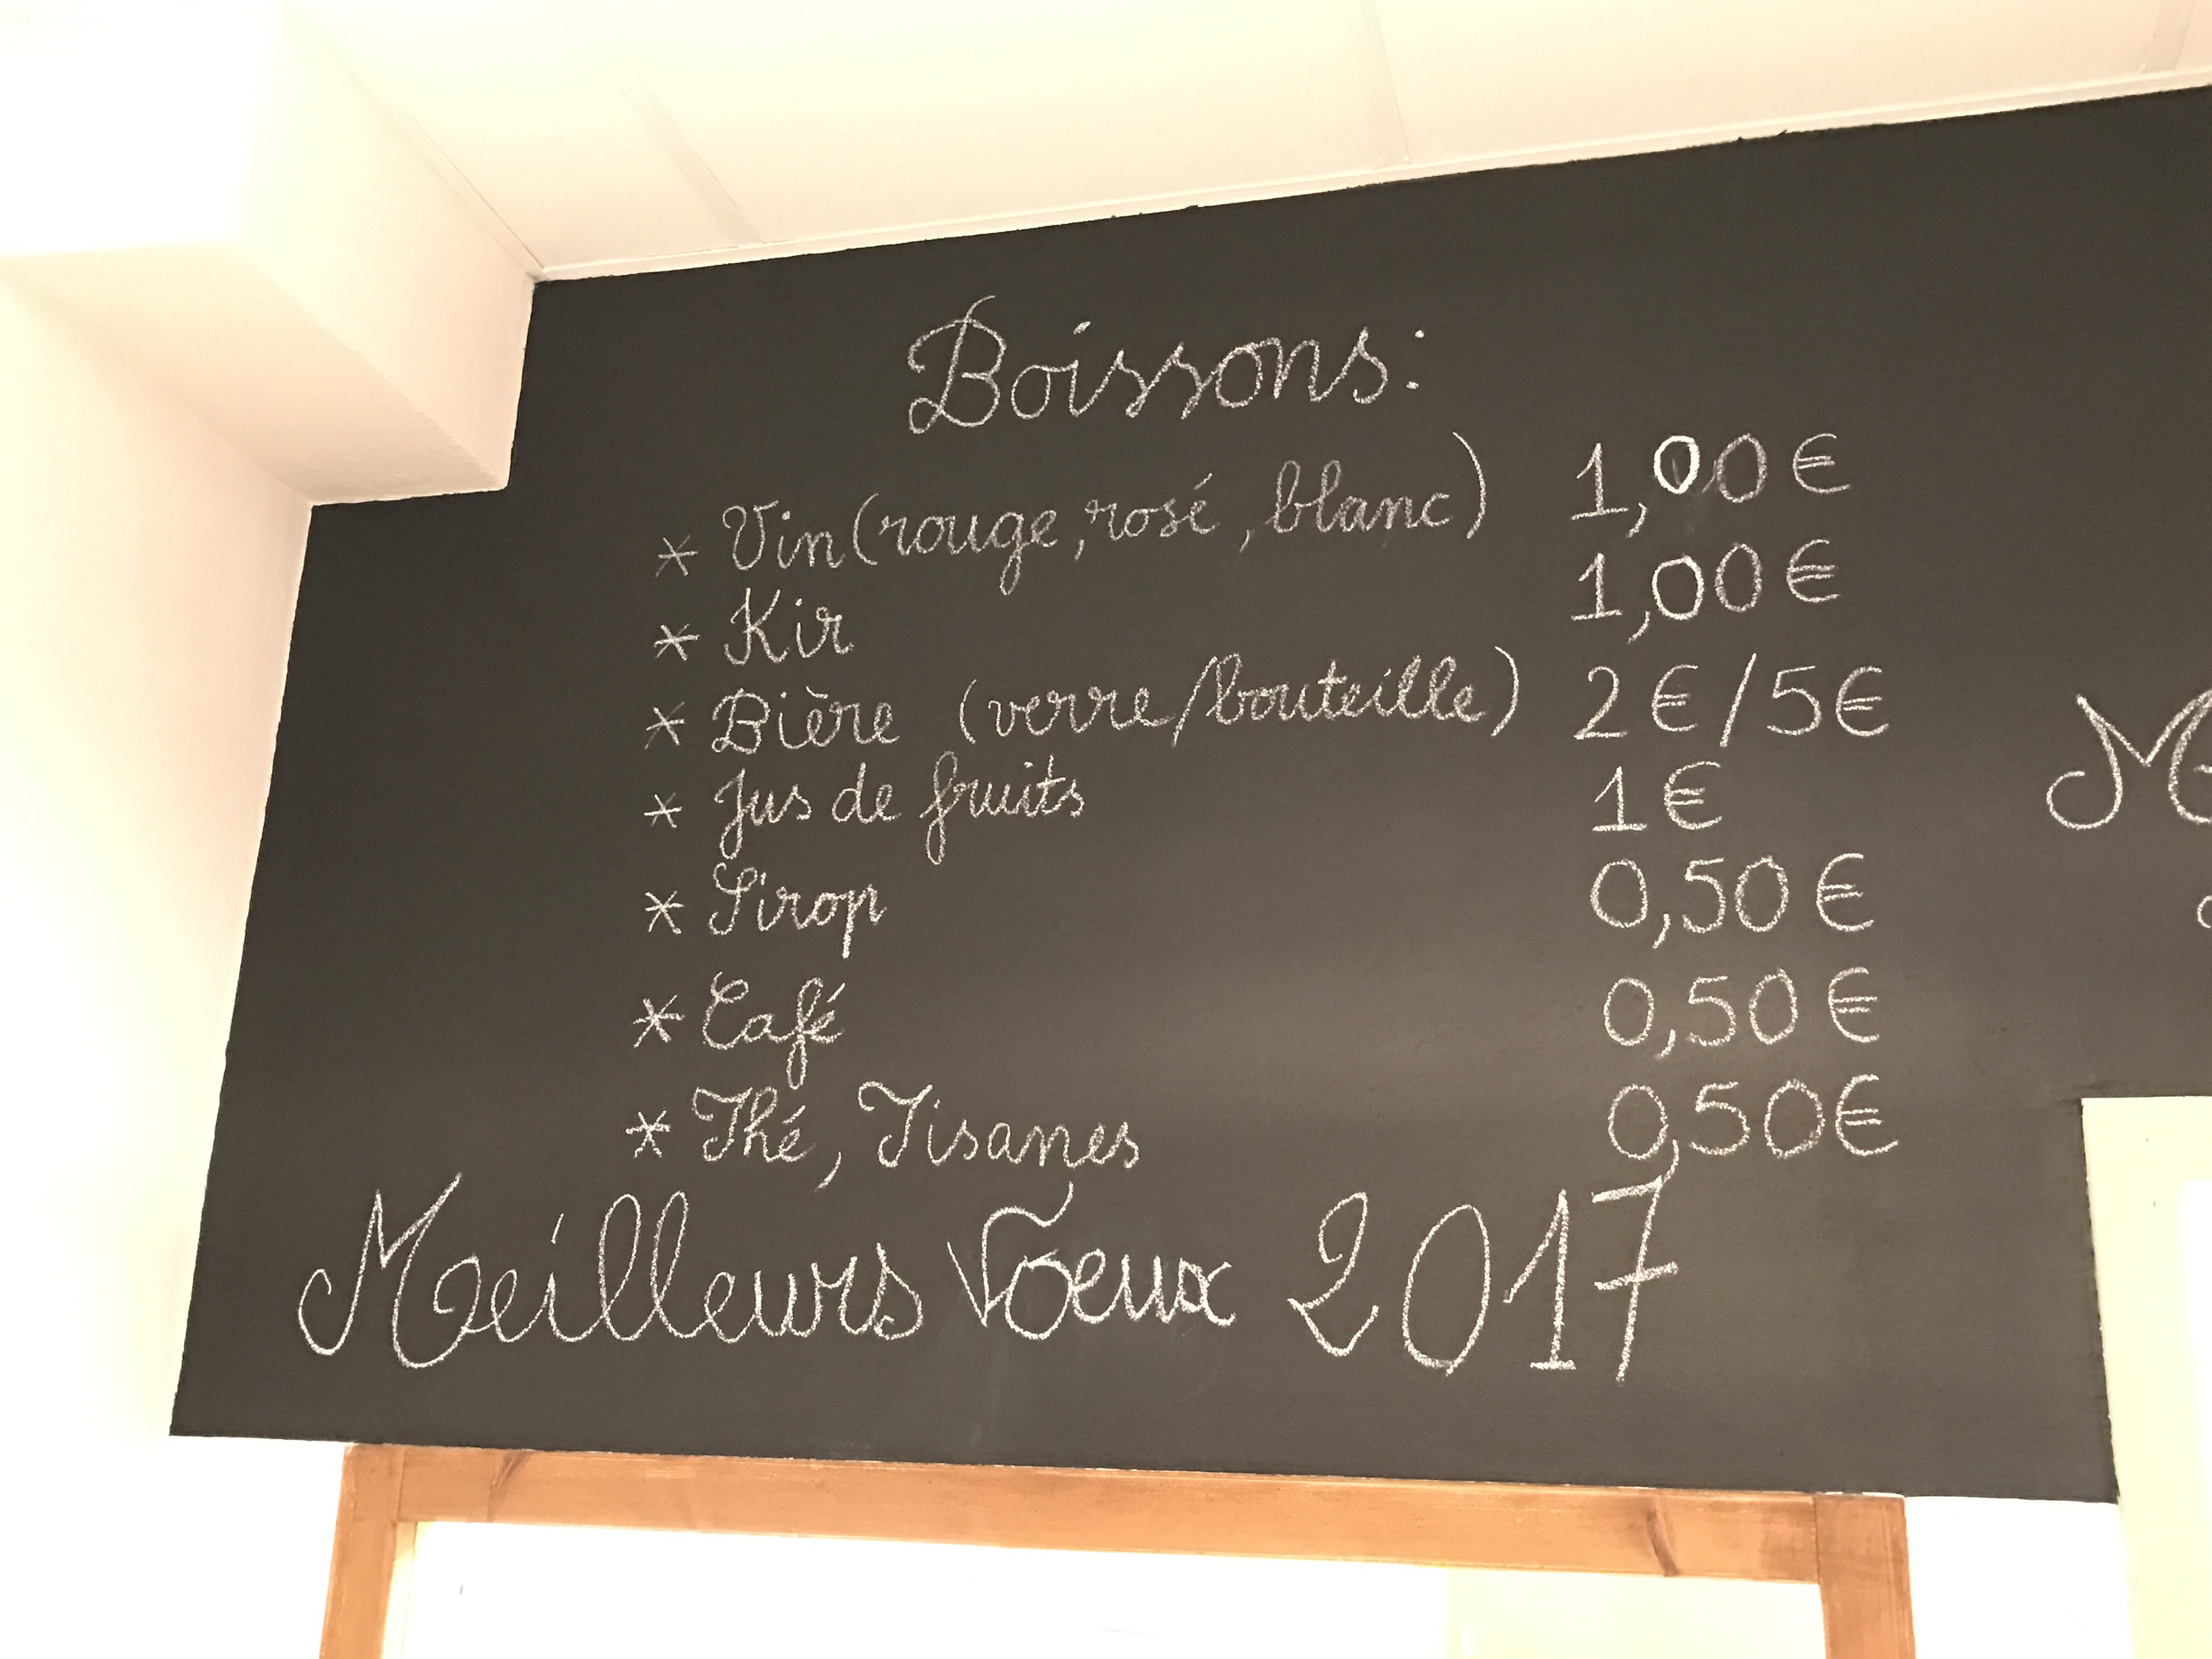 Boissons:
* Vin (rouge, rosé, blanc) 1,00€
* Kir 1,00€
* Bière (verre/bouteille) 2€/5€
* Jus de fruits 1€
* Sirop 0,50€
* Café 0,50€
* Thé, Tisanes 0,50€
Meilleurs Voeux 2017